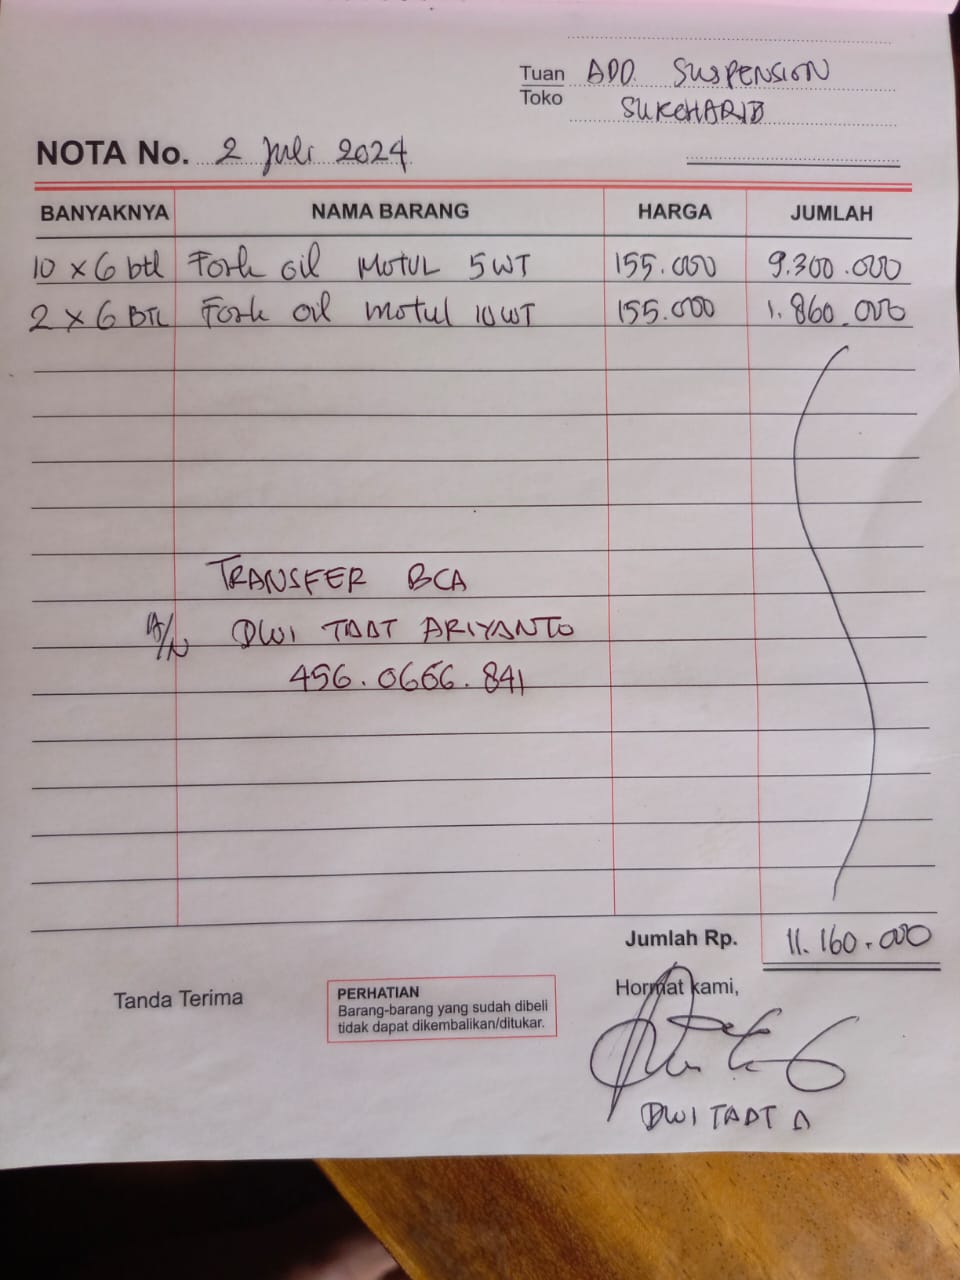 Tuan ADD SUSPENSION
Toko SUKOHARJO
NOTA No. 2 Juli 2024
BANYAKNYA NAMA BARANG HARGA JUMLAH
10 x 6 btl Fork oil MOTUL 5WT 155.000 9.300.000
2 x 6 BTL Fork oil motul 10WT 155.000 1.860.000
TRANSFER BCA
A/N DWI TAAT ARIYANTO
456.0666.841
Jumlah Rp. 11.160.000
Tanda Terima
PERHATIAN
Barang-barang yang sudah dibeli
tidak dapat dikembalikan/ditukar.
Hormat kami,
DWI TAAT A